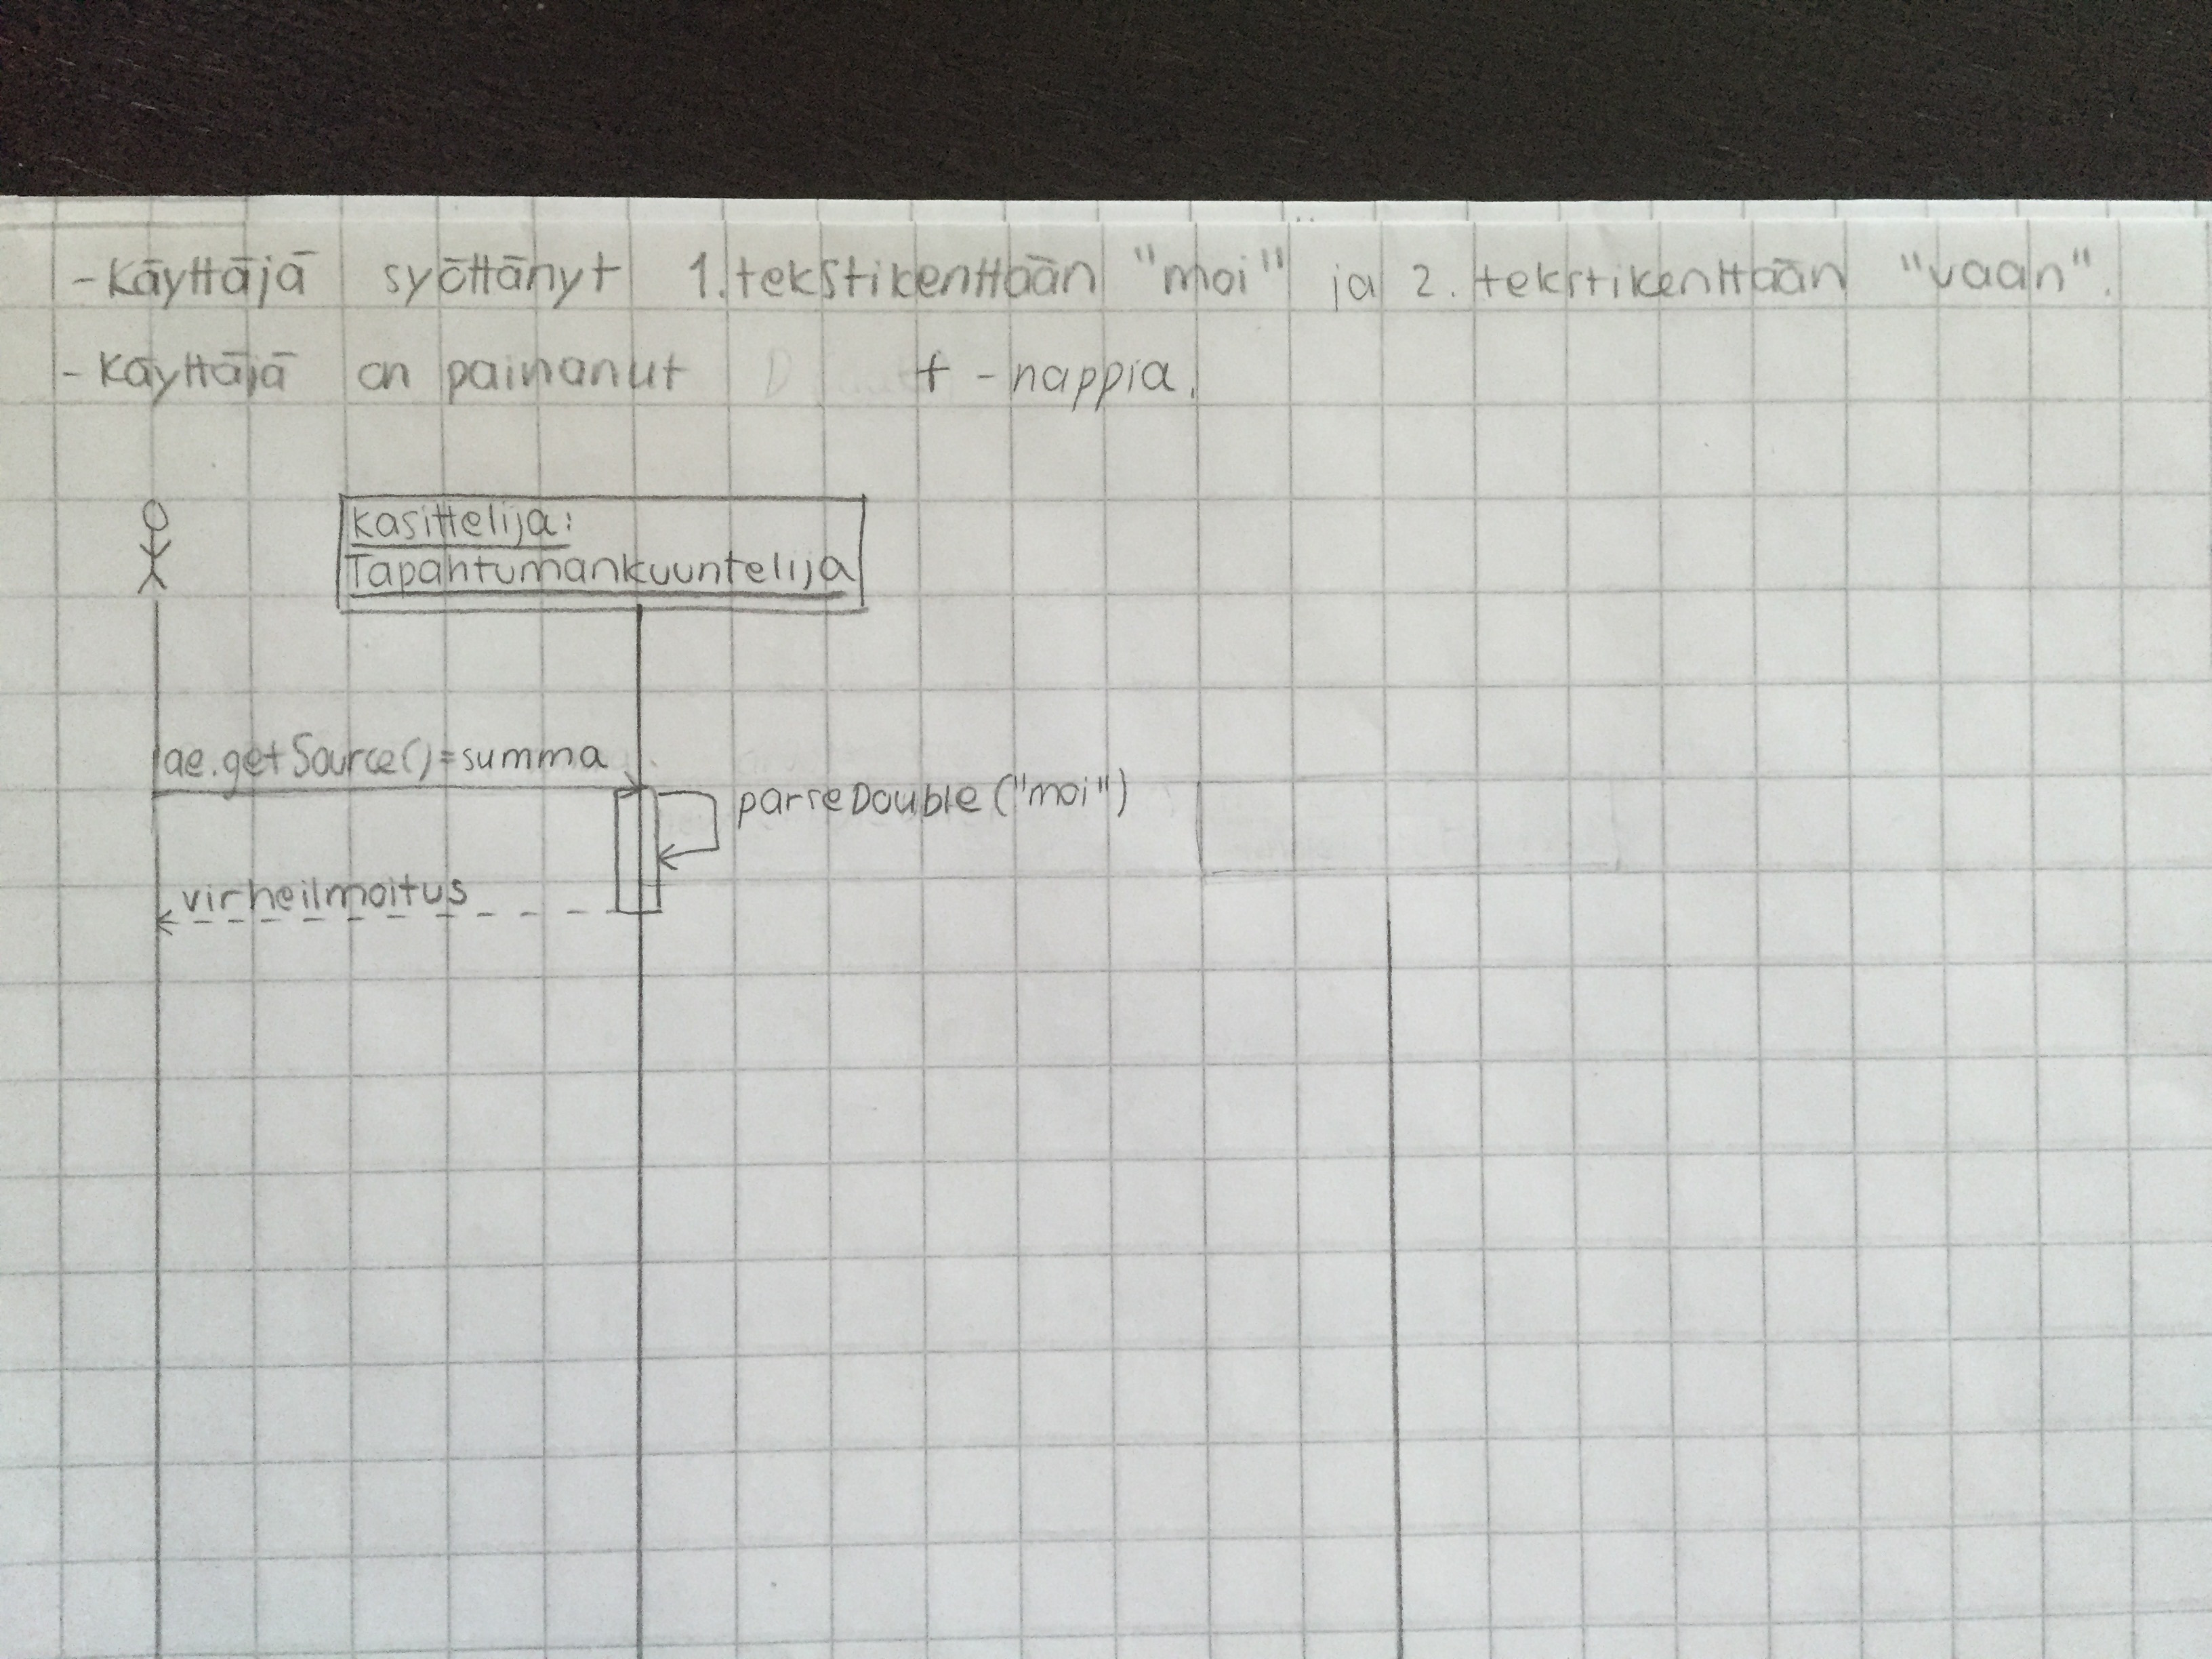 - Käyttäjä syöttänyt 1. tekstikenttään "moi" ja 2. tekstikenttään "vaan".
- Käyttäjä on painanut + -nappia.
kasittelija:
Tapahtumankuuntelija
ae.getSource()=summa
parseDouble("moi")
virheilmoitus